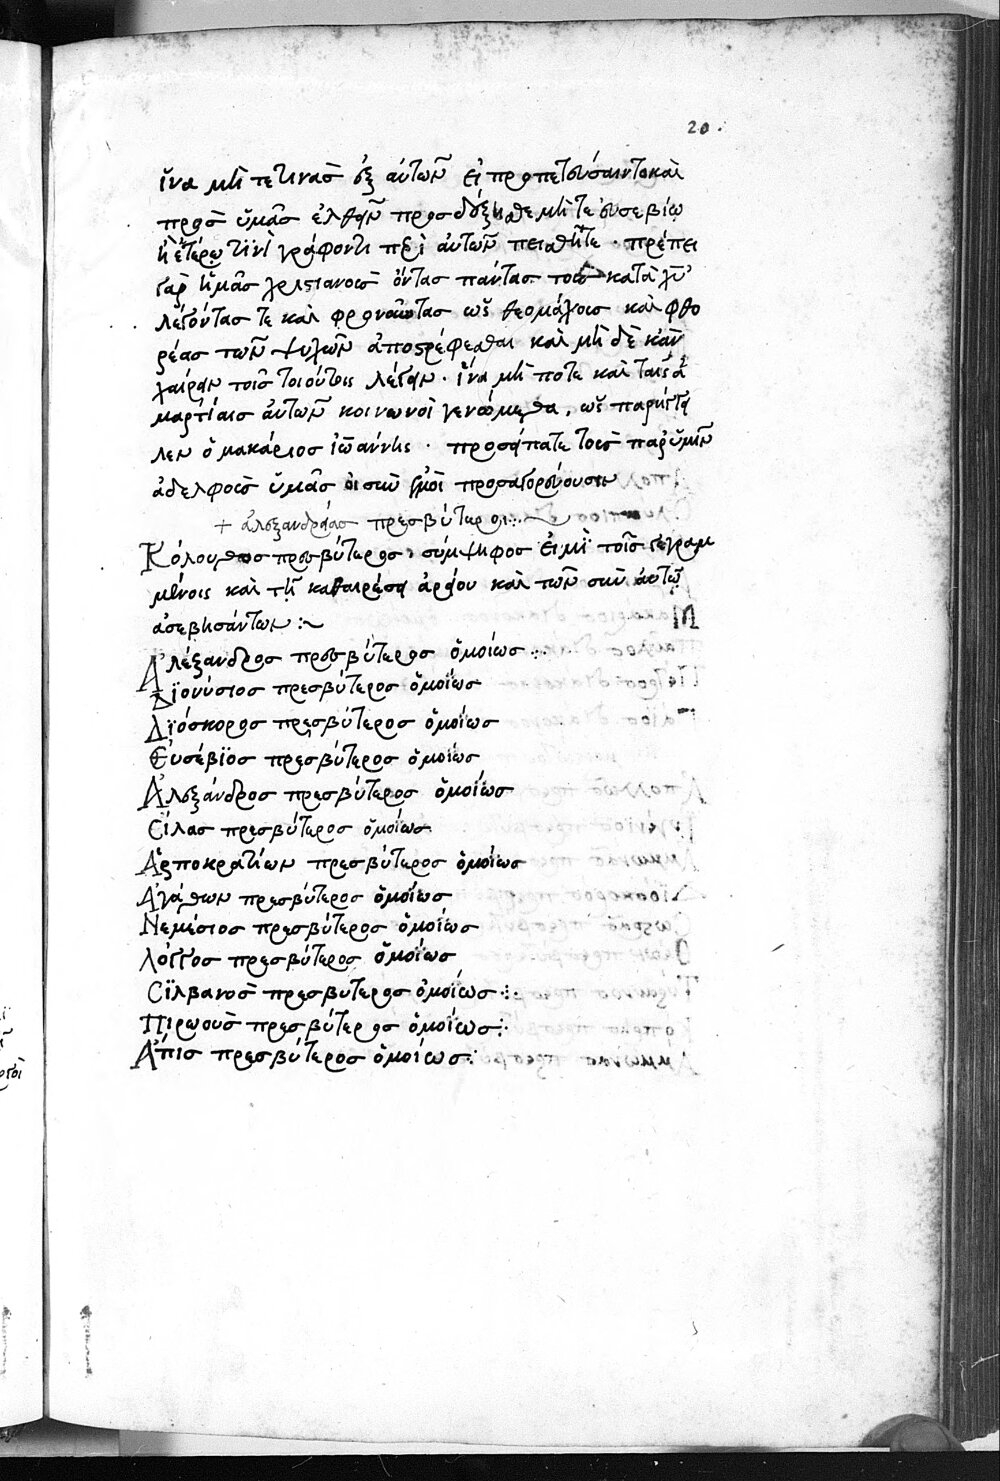 20.
ἵνα μήτε τινὰς ἐξ αὐτῶν εἰ προπετεύσαιντο καὶ
πρὸς ὑμᾶς ἐλθεῖν προσδέξησθε μήτε εὐσεβίω
ἢ ἑτέρω τινὶ γράφοντι περὶ αὐτῶν πεισθῆτε · πρέπει
γὰρ ἡμᾶς χριστιανοὺς ὄντας πάντας τοὺς κατὰ χυ
λέγοντάς τε καὶ φρονοῦντας ὡς θεομάχους καὶ φθο
ρέας τῶν ψυχῶν ἀποστρέφεσθαι καὶ μὴ δὲ κἂν
χαίρειν τοῖς τοιούτοις λέγειν · ἵνα μή ποτε καὶ ταῖς ἁ
μαρτίαις αὐτῶν κοινωνοὶ γενώμεθα, ὡς παρήγγει
λεν ὁ μακάριος ἰωάννης · προσείπατε τοὺς παρ' ὑμῖν
ἀδελφοὺς ὑμᾶς οἱ σὺν ἐμοὶ προσαγορεύουσιν
+ ἀλεξανδρείας πρεσβύτεροι
Κόλουθος πρεσβύτερος, σύμψηφός εἰμι τοῖς γεγραμ
μένοις καὶ τῇ καθαιρέσει ἀρείου καὶ τῶν σὺν αὐτῷ
ἀσεβησάντων :~
Ἀλέξανδρος πρεσβύτερος ὁμοίως :
Διονύσιος πρεσβύτερος ὁμοίως
Διόσκορος πρεσβύτερος ὁμοίως
Εὐσέβϊος πρεσβύτερος ὁμοίως
Ἀλέξανδρος πρεσβύτερος ὁμοίως
Σίλας πρεσβύτερος ὁμοίως
Ἁρποκρατίων πρεσβύτερος ὁμοίως
Ἀγάθων πρεσβύτερος ὁμοίως
Νεμέσιος πρεσβύτερος ὁμοίως
Λόγγος πρεσβύτερος ὁμοίως
Σϊλβανὸς πρεσβύτερος ὁμοίως :
Πιρωοὺς πρεσβύτερος ὁμοίως :
Ἄπις πρεσβύτερος ὁμοίως :